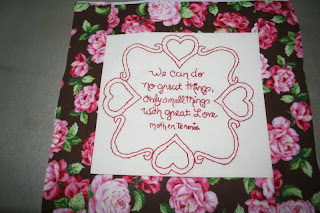 We can do
no great things,
Only small things
with great Love
Mother Teresa